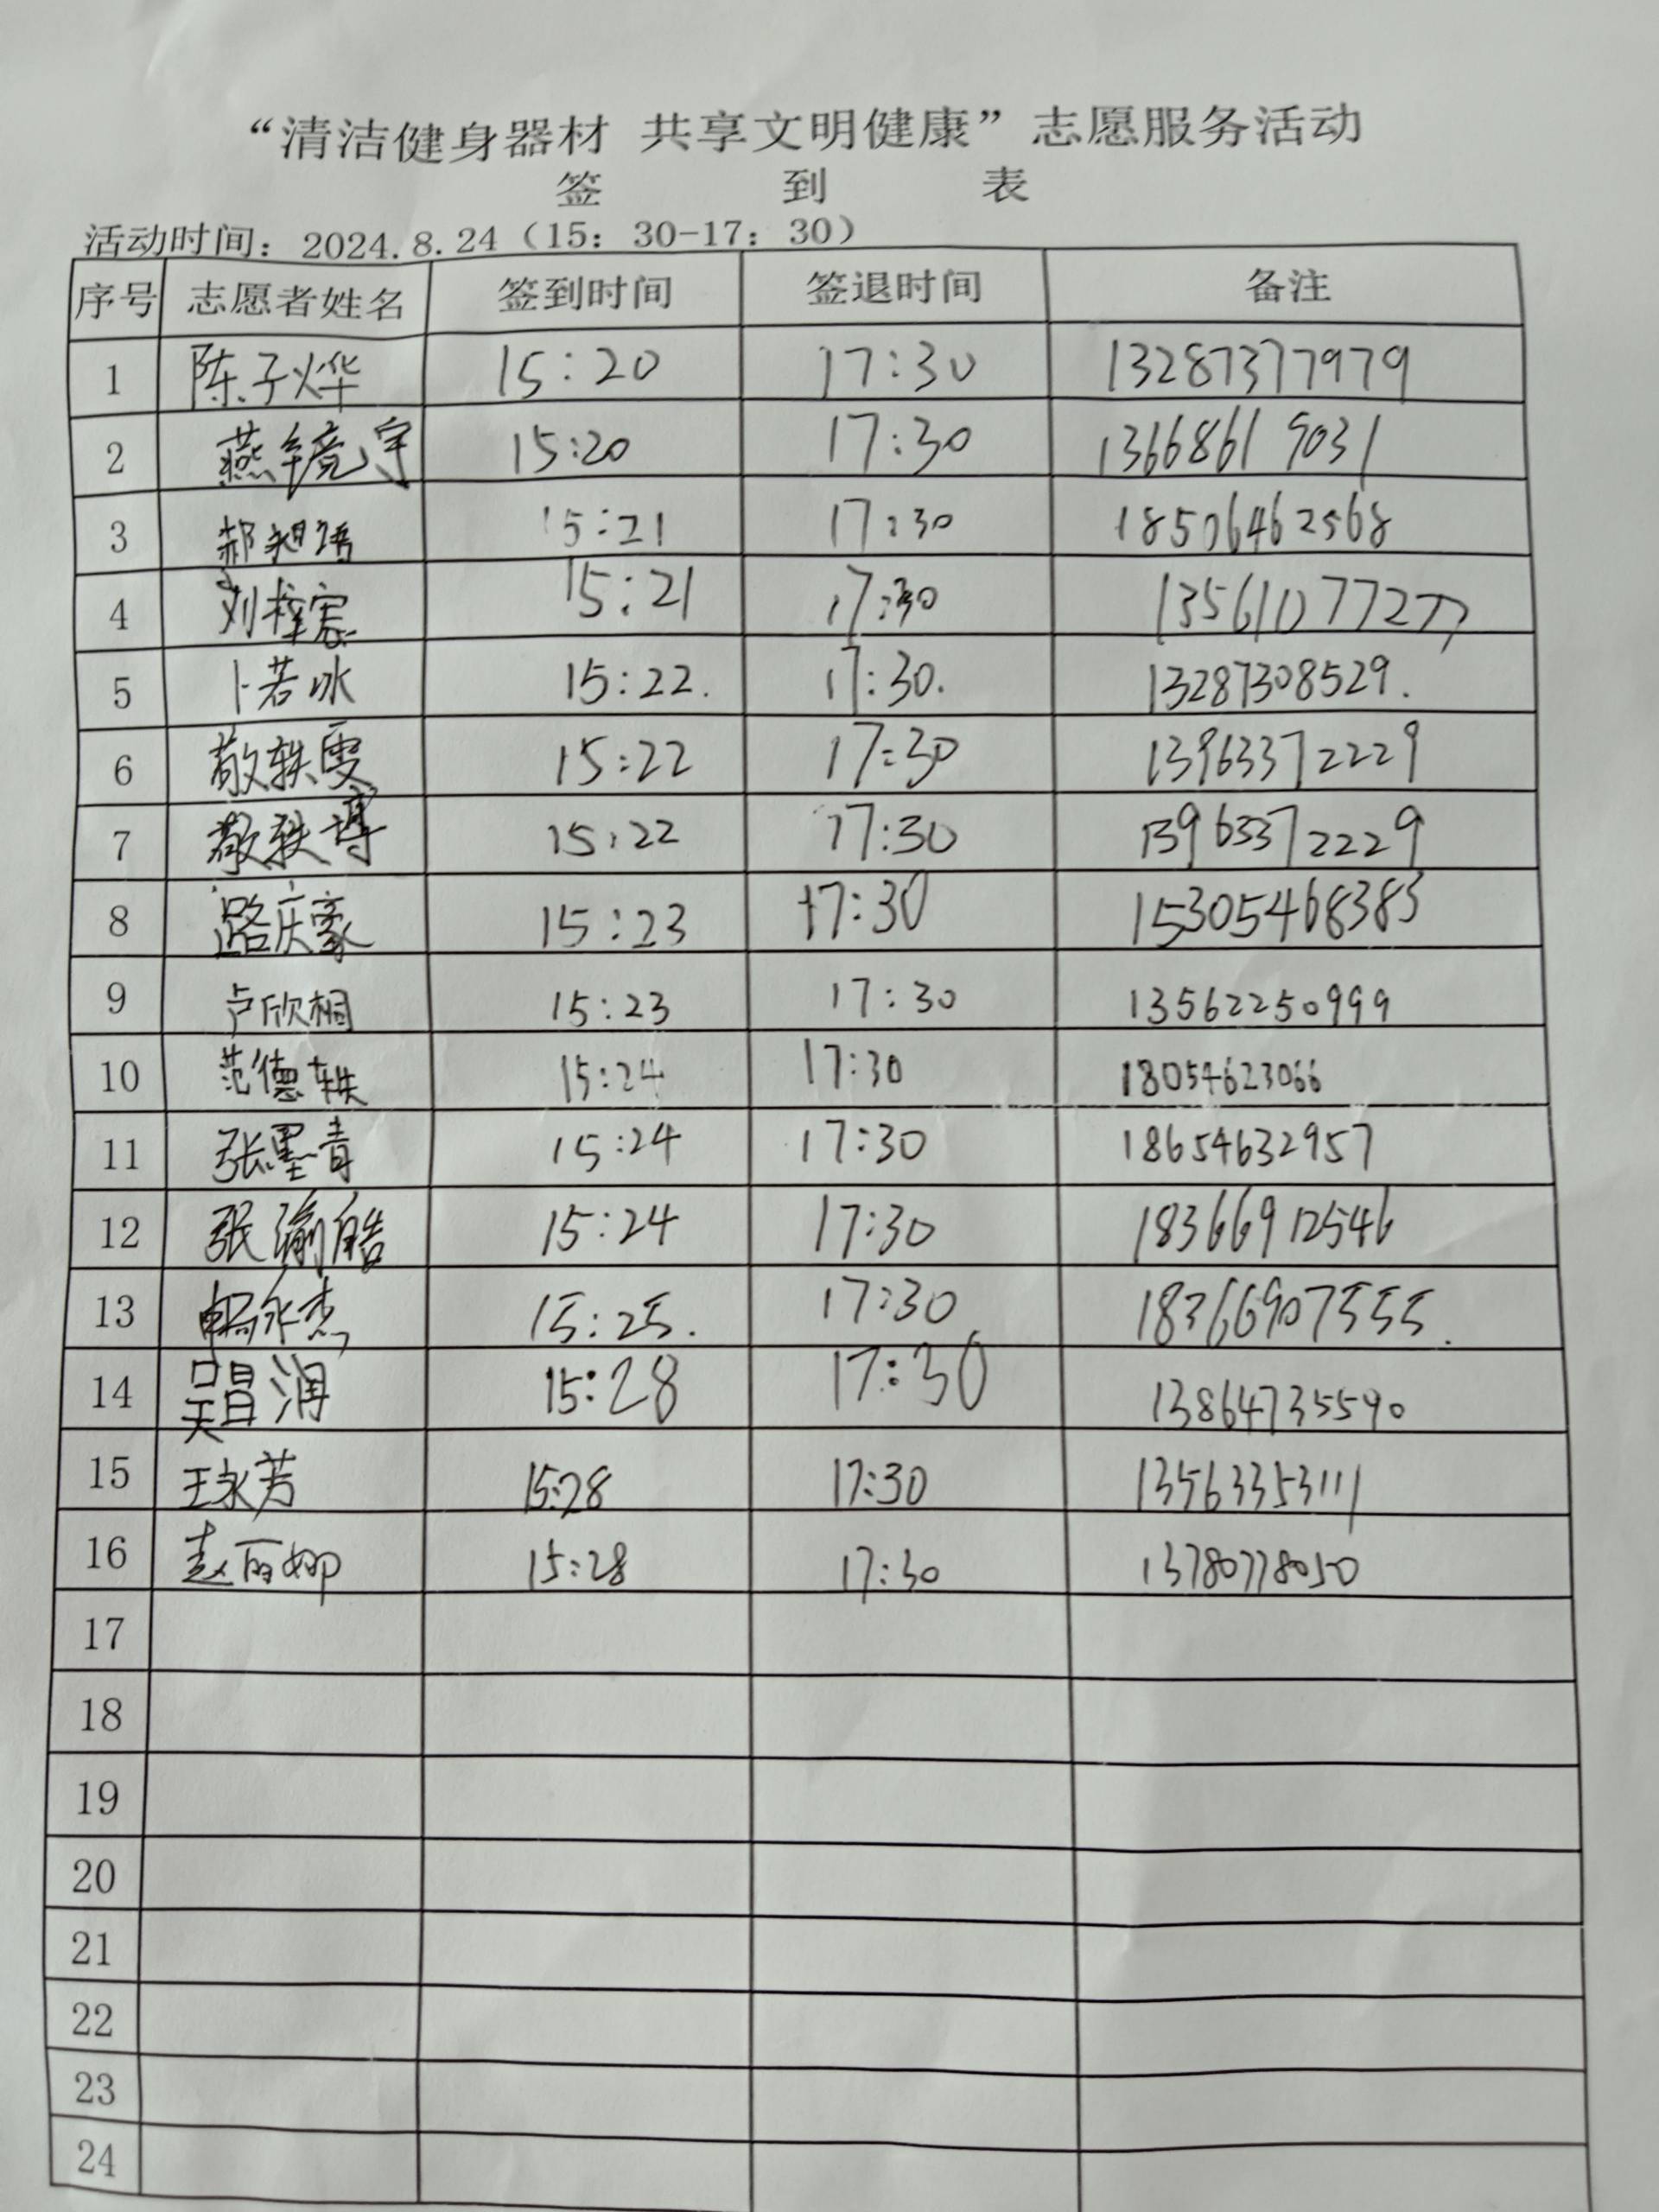 “清洁健身器材 共享文明健康”志愿服务活动
签 到 表
活动时间：2024.8.24（15：30-17：30）
序号 志愿者姓名 签到时间 签退时间 备注
1 陈子烨 15:20 17:30 13287377979
2 燕镜宇 15:20 17:30 13668619031
3 郝昶语 15:21 17:30 18506462568
4 刘梓宸 15:21 17:30
5 卜若冰 15:22. 17:30. 13287308529.
6 敬轶雯 15:22 17:30 13963372229
7 敬轶博 15:22 17:30 13963372229
8 路庆豪 15:23 17:30 15305468383
9 卢欣桐 15:23 17:30 13562250999
10 范德轶 15:24 17:30 18054623066
11 张墨青 15:24 17:30 18654632957
12 张瑜皓 15:24 17:30 18366912546
13 永杰 15:25. 17:30 18366907555.
14 吴昌润 15:28 17:30 13864735590
15 王永芳 15:28 17:30 13563353111
16 赵丽娜 15:28 17:30 13780778050
17
18
19
20
21
22
23
24